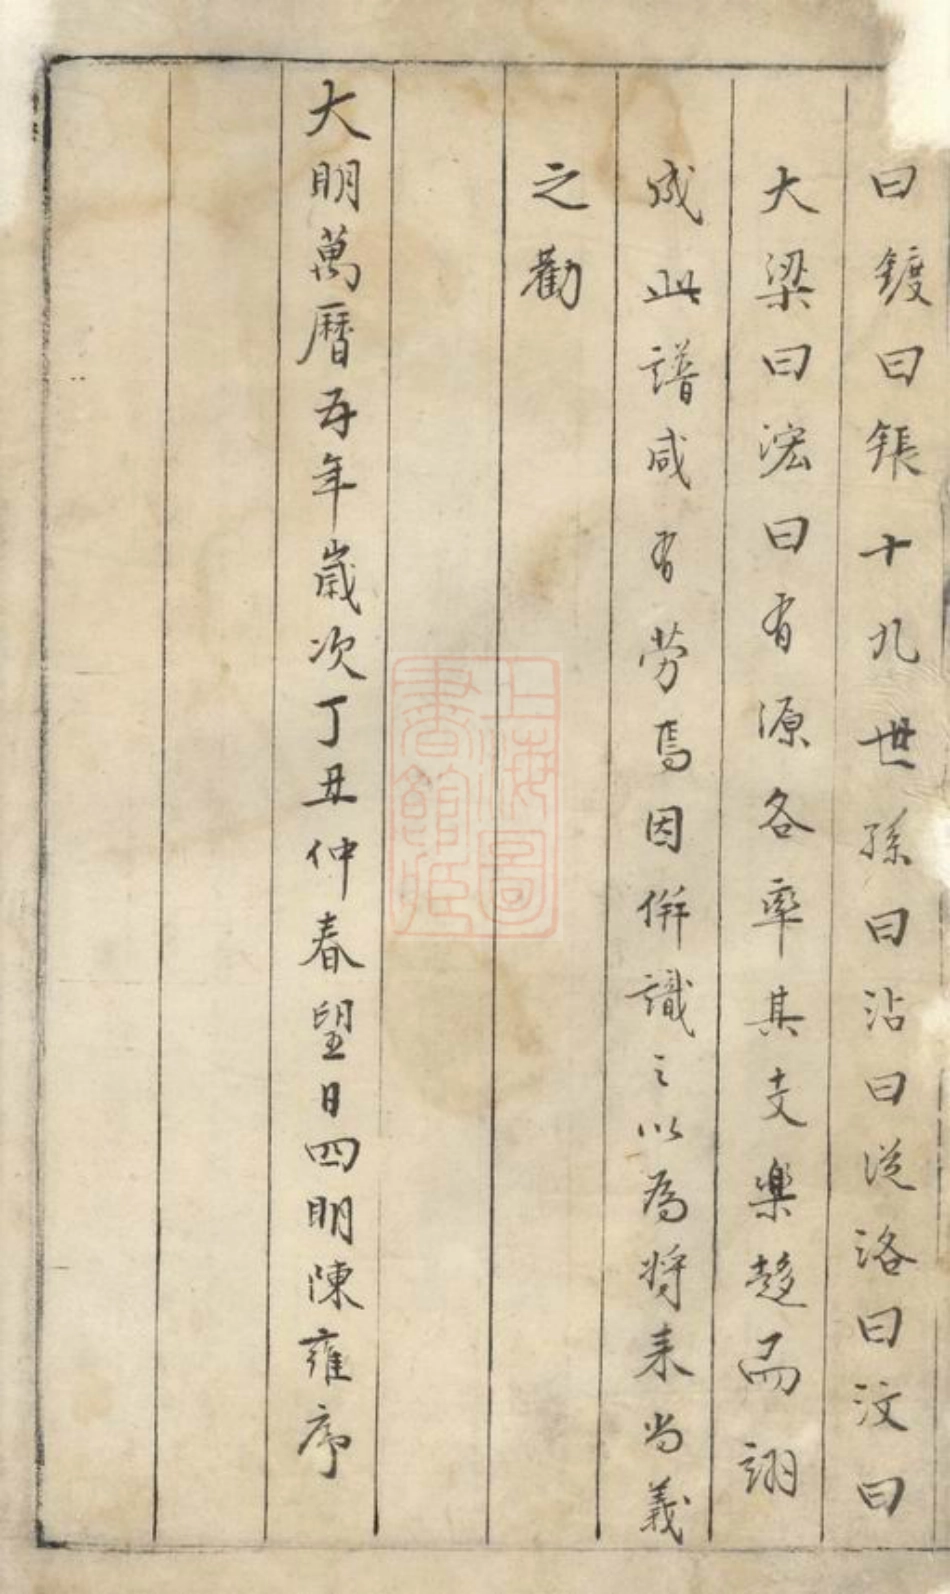 曰鍍曰鋹十九世孫曰沾曰従洛曰汶曰
大梁曰浤曰有源各率其支樂趍而詡
成此譜咸有劳焉因併識之以為将来尚義
之勸
大明萬曆五年歲次丁丑仲春望日四明陳雍序
上海圖
書館藏